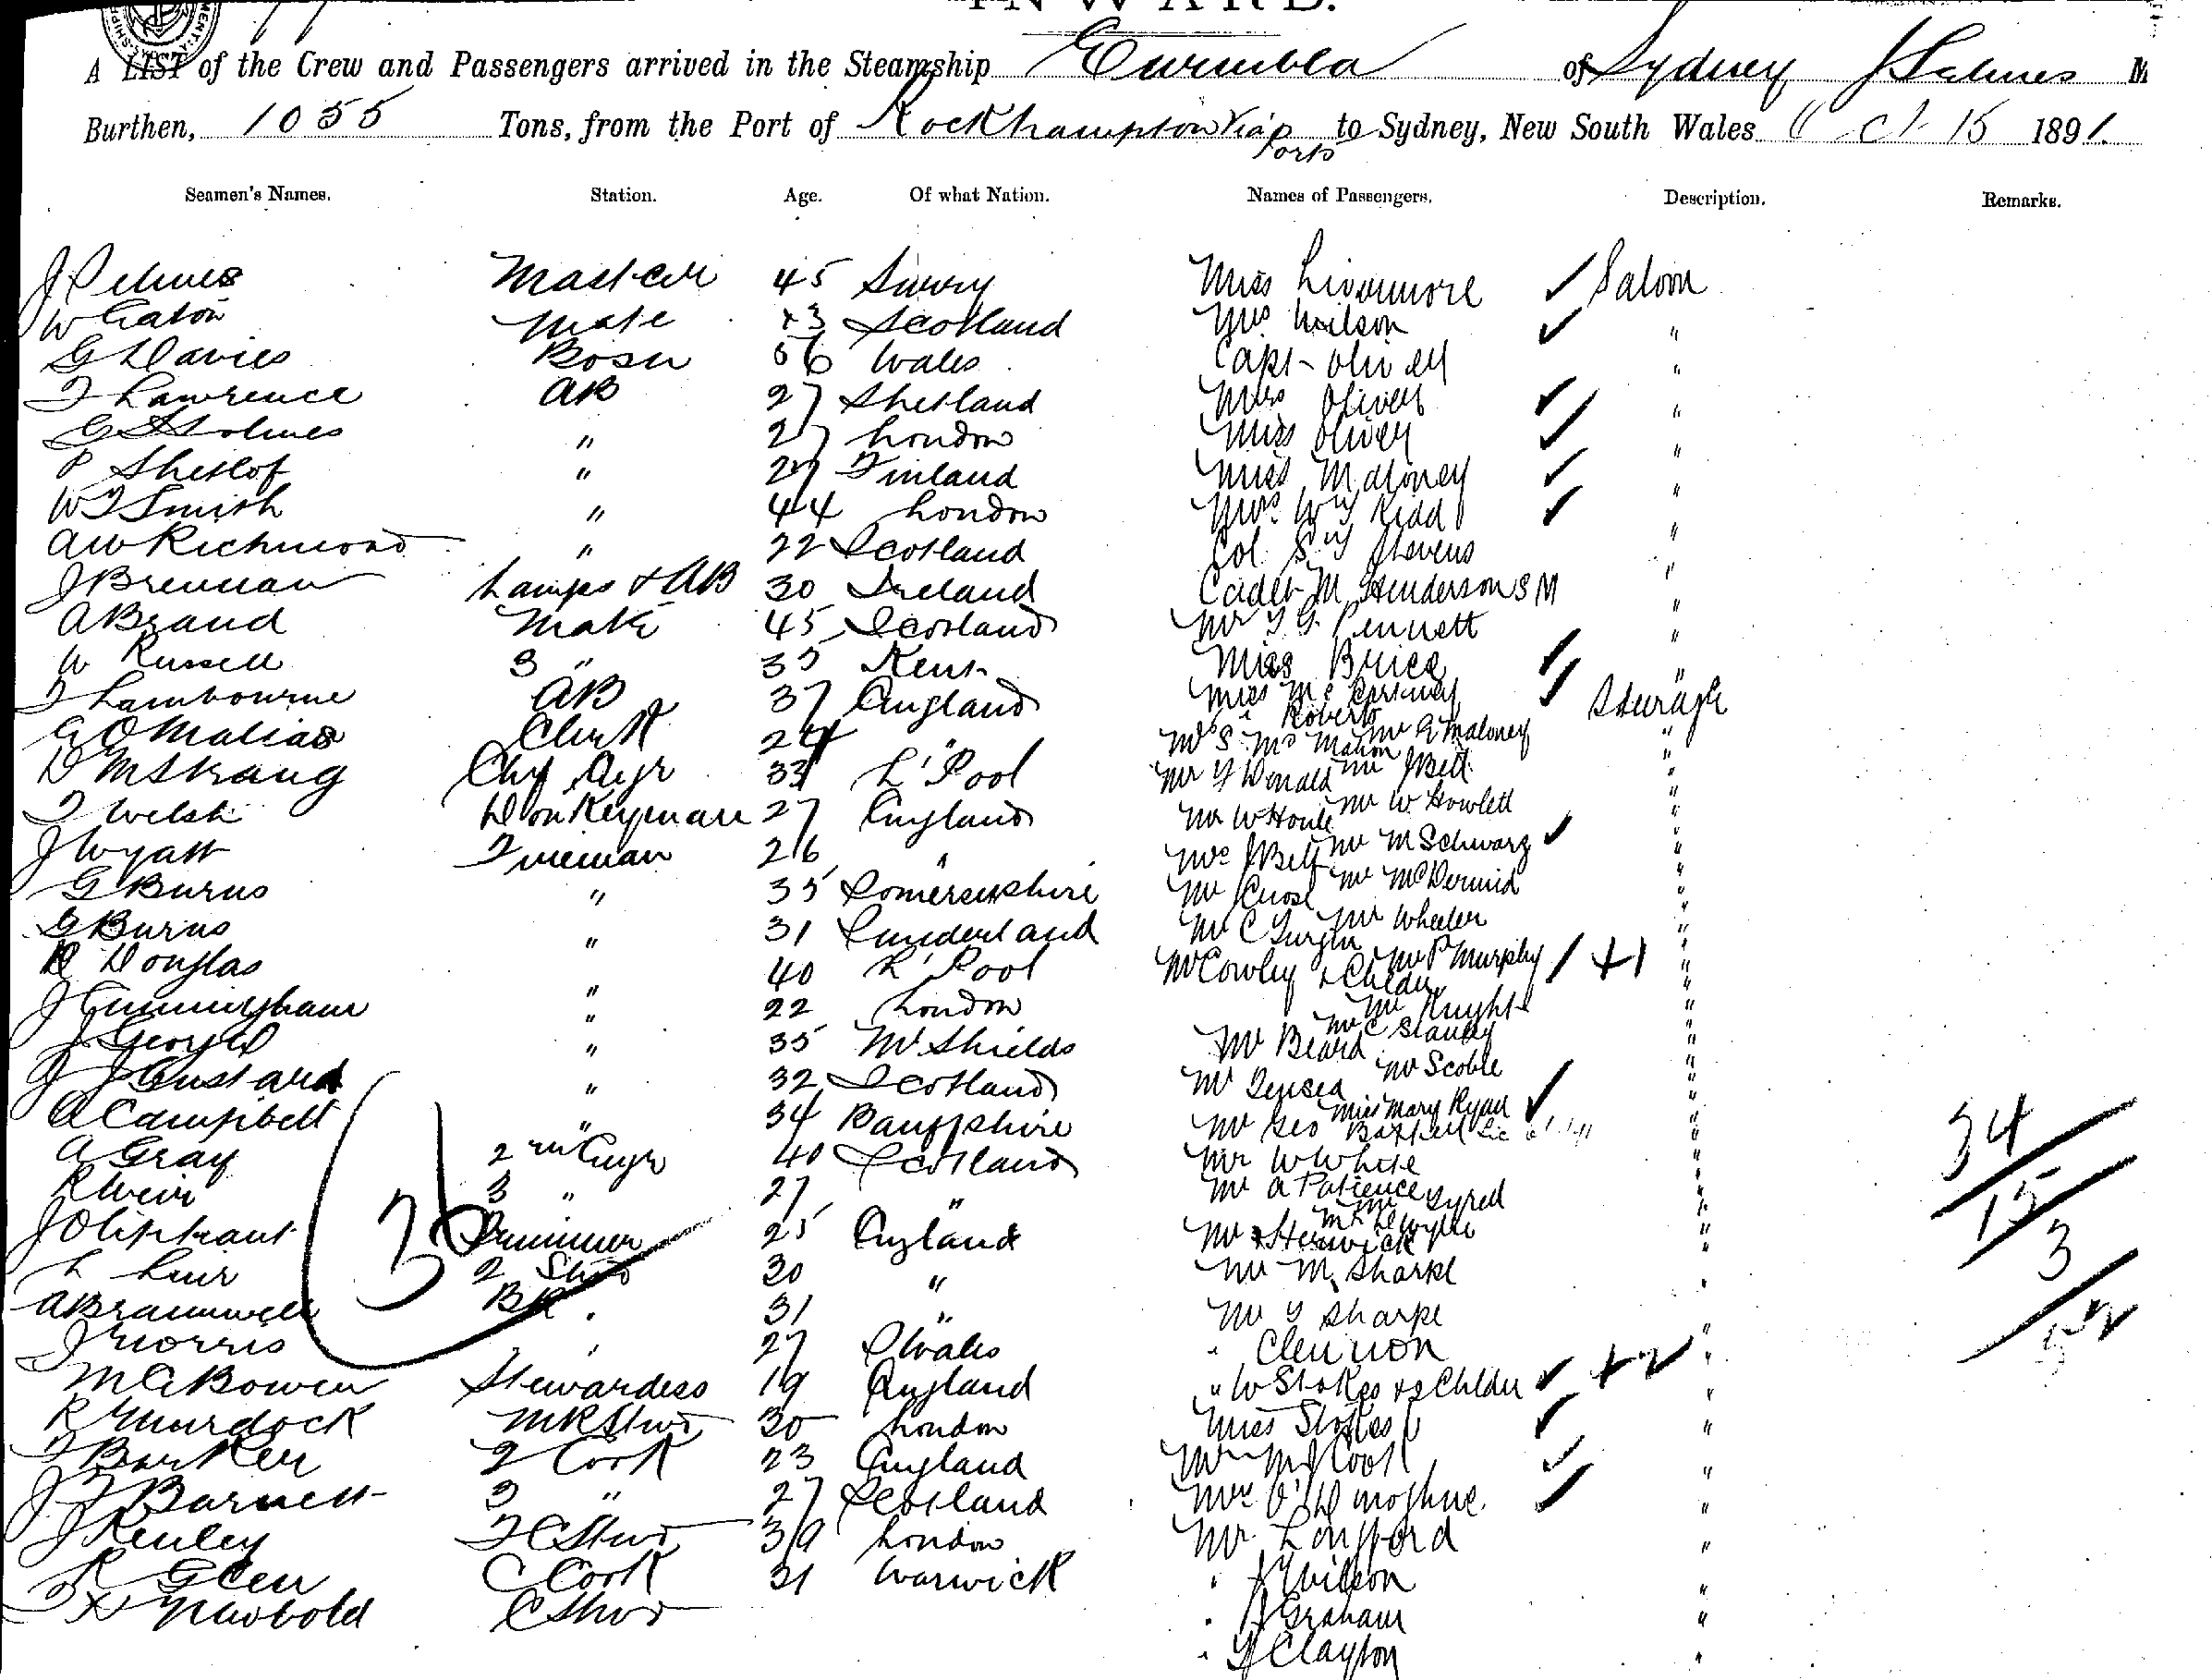 INWARD.
A LIST of the Crew and Passengers arrived in the Steamship Eurimbla of Sydney
Burthen, 1055 Tons, from the Port of Rockhampton via ports to Sydney, New South Wales Oct 15 1891.
Seamen's Names. Station. Age. Of what Nation. Names of Passengers. Description. Remarks.
Master 45 Miss Livermore Saloon
W Eaton Mate 43 Scotland Mrs Wilson "
G Davies Bosn 56 Wales Capt Oliver "
T Lawrence AB 27 Shetland Mrs Oliver "
G Holmes " 27 London Miss Oliver "
P " 27 Finland Miss Maloney "
W T Smith " 44 London Mrs Kidd "
A W Richmond " 22 Scotland Col Stevens "
J Brennan Lamps & AB 30 Ireland Cadet M Henderson "
A Brand Mate 45 Scotland Mr Pennett "
W Russell 3 " 35 Kent Miss Brice "
T Lambourne AB 37 England Miss Steerage
G O Malias Clerk 24 " Roberts
Mr S McMahon Mr A Maloney "
D M Strang Chf Engr 33 L'Pool Mr Y Donald Mr J Bell "
T Welsh Donkeyman 27 England Mr W Howlett "
J Wyatt Fireman 26 " Mrs J Bell Mr M Schwarz "
G Burns " 35 Somersetshire Mr Mr McDermid "
G Burns " 31 Sunderland Mr C Mr Wheeler "
R Douglas " 40 L'Pool Mr Cowley & Child Mr P Murphy +1 "
J Cunningham " 22 London Mr Knight "
J George " 35 N Shields Mr Beard Mr C Stanley "
J J Gustard " 32 Scotland Mr Mr Scoble "
A Campbell " 34 Banffshire Mr Geo Miss Mary Ryan "
A Gray 2nd Engr 40 Scotland Mr W White "
R Weir 3 " 27 " Mr A Patience Mr Syred "
J Oliphant 25 England Mr "
L 2 Stwd 30 " Mr M Sharpe "
A Bramwell 31 " Mr Y Sharpe "
J Morris 27 S Wales "
M A Bowen Stewardess 19 England " W Stokes & 2 Childn +2 "
R Murdock 30 London Miss Stokes "
T Barker 2 Cook 23 England M J Cook "
J T Barnett 3 " 27 Scotland Mrs O'Donoghue "
J Kenley F C Stwd 39 London Mr Longford "
R Glen C Cook 31 Warwick " Wilson "
Newbold C Stwd " Graham "
" Clayton "
36
34
15
3
52